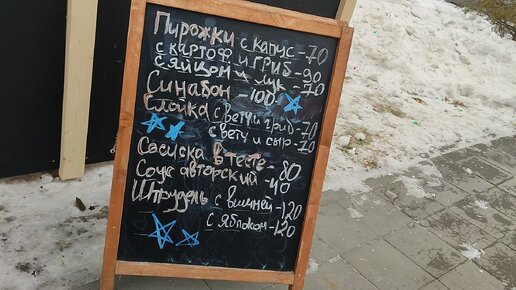 Пирожки с капус - 70
с картоф и гриб - 90
с яйцом и лук - 70
Синабон - 100
Слойка с ветч и гриб - 70
с ветч и сыр - 70
Сосиска в тесте - 80
Соус авторский - 40
Штрудель с вишней - 120
с яблоком - 120